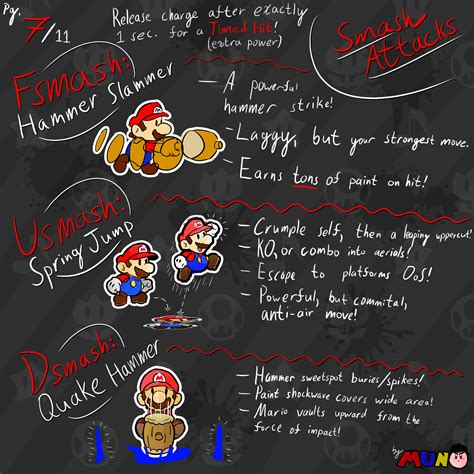 Pg. 7/11
Release charge after exactly
1 sec. for a Timed Hit!
(extra power)
Smash
Attacks
Fsmash:
Hammer Slammer
- A powerful
hammer strike!
- Laggy, but your strongest move.
- Earns tons of paint on hit!
Usmash:
Spring Jump
- Crumple self, then a leaping uppercut!
- KO, or combo into aerials!
- Escape to platforms OoS!
- Powerful, but commital,
anti-air move!
Dsmash:
Quake Hammer
- Hammer sweetspot buries/spikes!
- Paint shockwave covers wide area!
- Mario vaults upward from the
force of impact!
by MUNO